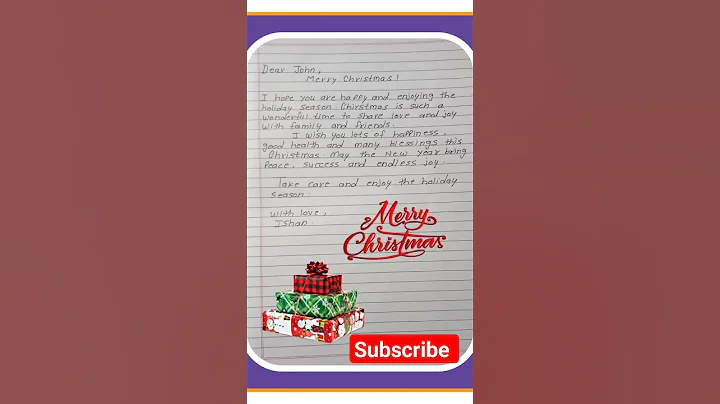 Dear John,
Merry Christmas!
I hope you are happy and enjoying the
holiday season. Chirstmas is such a
wonderful time to share love and joy
with family and friends.
I wish you lots of happiness
good health and many blessings this
Christmas. May the New year bring
Peace, success and endless joy.
Take care and enjoy the holiday
season.
with love,
IShan
Merry
Christmas
Subscribe